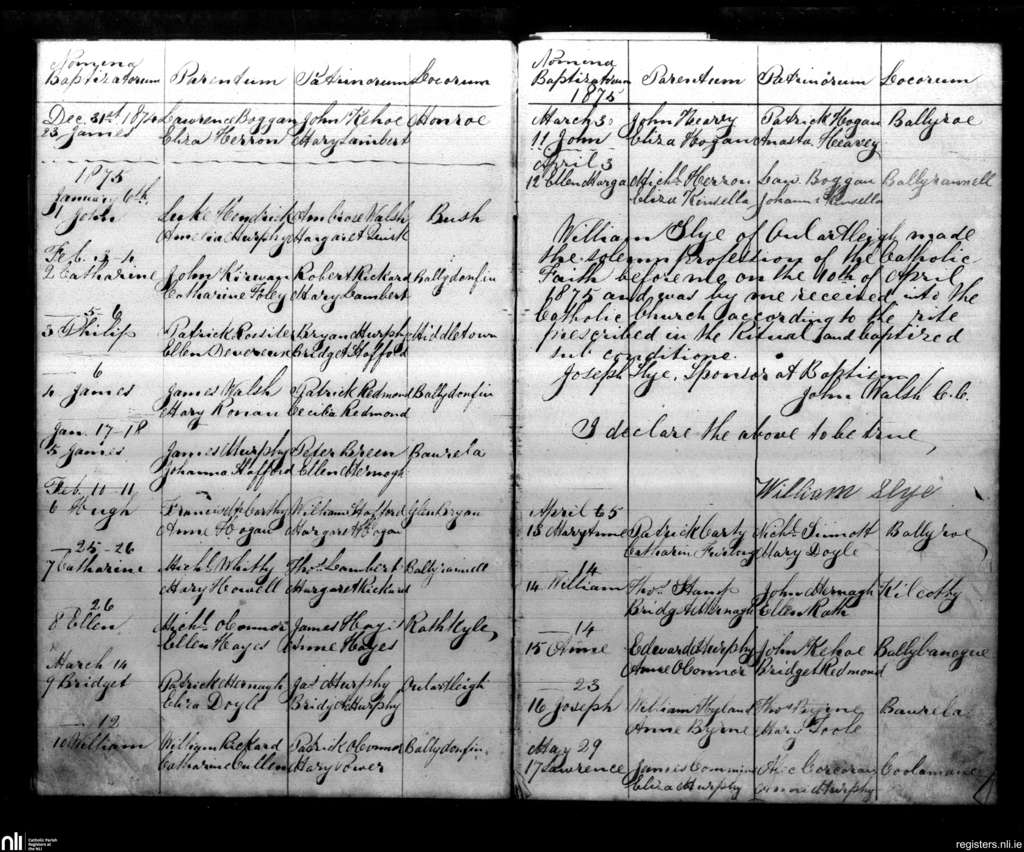 Nomina
Baptizatorum Parentum Patrinorum Locorum
Dec. 31st 1874 Lawrence Boggan John Kehoe Monroe
23 James Eliza Herron Mary Lambert
1875
January 6th
1 John Luke Hendrick Ambrose Walsh Bush
Amelia Murphy Margaret
Feb. 2 4
2 Catharine John Kirwan Robert Rickard Ballydonfin
Catharine Foley Mary Lambert
5 6
3 Philip Patrick Rossiter Bryan Murphy Middletown
Ellen Devereux Bridget Stafford
6
4 James James Walsh Patrick Redmond Ballydonfin
Mary Ronan Cecilia Redmond
Jan. 17-18
5 James James Murphy Peter Breen Baurela
Johanna Stafford Ellen Mernagh
Feb. 10 11
6 Hugh Francis McCarthy William Stafford Glenbryan
Anne Hogan Margaret Hogan
25-26
7 Catharine Michl. Whitty Thos. Lambert Ballyrannell
Mary Howell Margaret Rickard
26
8 Ellen Michl. O Connor James Hayes Rathkyle
Ellen Hayes Anne Hayes
March 14
9 Bridget Patrick Mernagh Jas. Murphy Oulartleigh
Eliza Doyle Bridget Murphy
12
10 William William Rickard Patrick O Connor Ballydonfin
Catharine Cullen Mary Power
Nomina
Baptizatorum Parentum Patrinorum Locorum
1875
March 30 John Hearey Patrick Hogan Ballyroe
11 John Eliza Hogan Anasta. Hearey
April 3
12 Ellen Marga Michl. Herron Law. Boggan Ballyrannell
Eliza Kinsella Johanna Kinsella
William Slye of Oulartleigh made
the solemn Profession of the Catholic
Faith before me on the 10th of April
1875 and was by me received into the
Catholic Church according to the rite
prescribed in the Ritual and baptized
sub conditione.
Joseph Slye, Sponsor at Baptism
John Walsh C.C.
I declare the above to be true,
William Slye
April 65
13 Mary Anne Patrick Carty Nichs. Sinnott Ballyroe
Catharine Furlong Mary Doyle
14
14 William Thos. John Mernagh Kilcotty
Bridget Mernagh Ellen Rath
14
15 Anne Edward Murphy John Kehoe Ballycanogue
Anne O Connor Bridget Redmond
23
16 Joseph William Hyland Thos. Byrne Baurela
Anne Byrne Mary Toole
May 29
17 Lawrence James Commins Nic Corcoran Coolamain
Eliza Murphy Murphy
nli Catholic Parish
Registers at
the NLI
registers.nli.ie